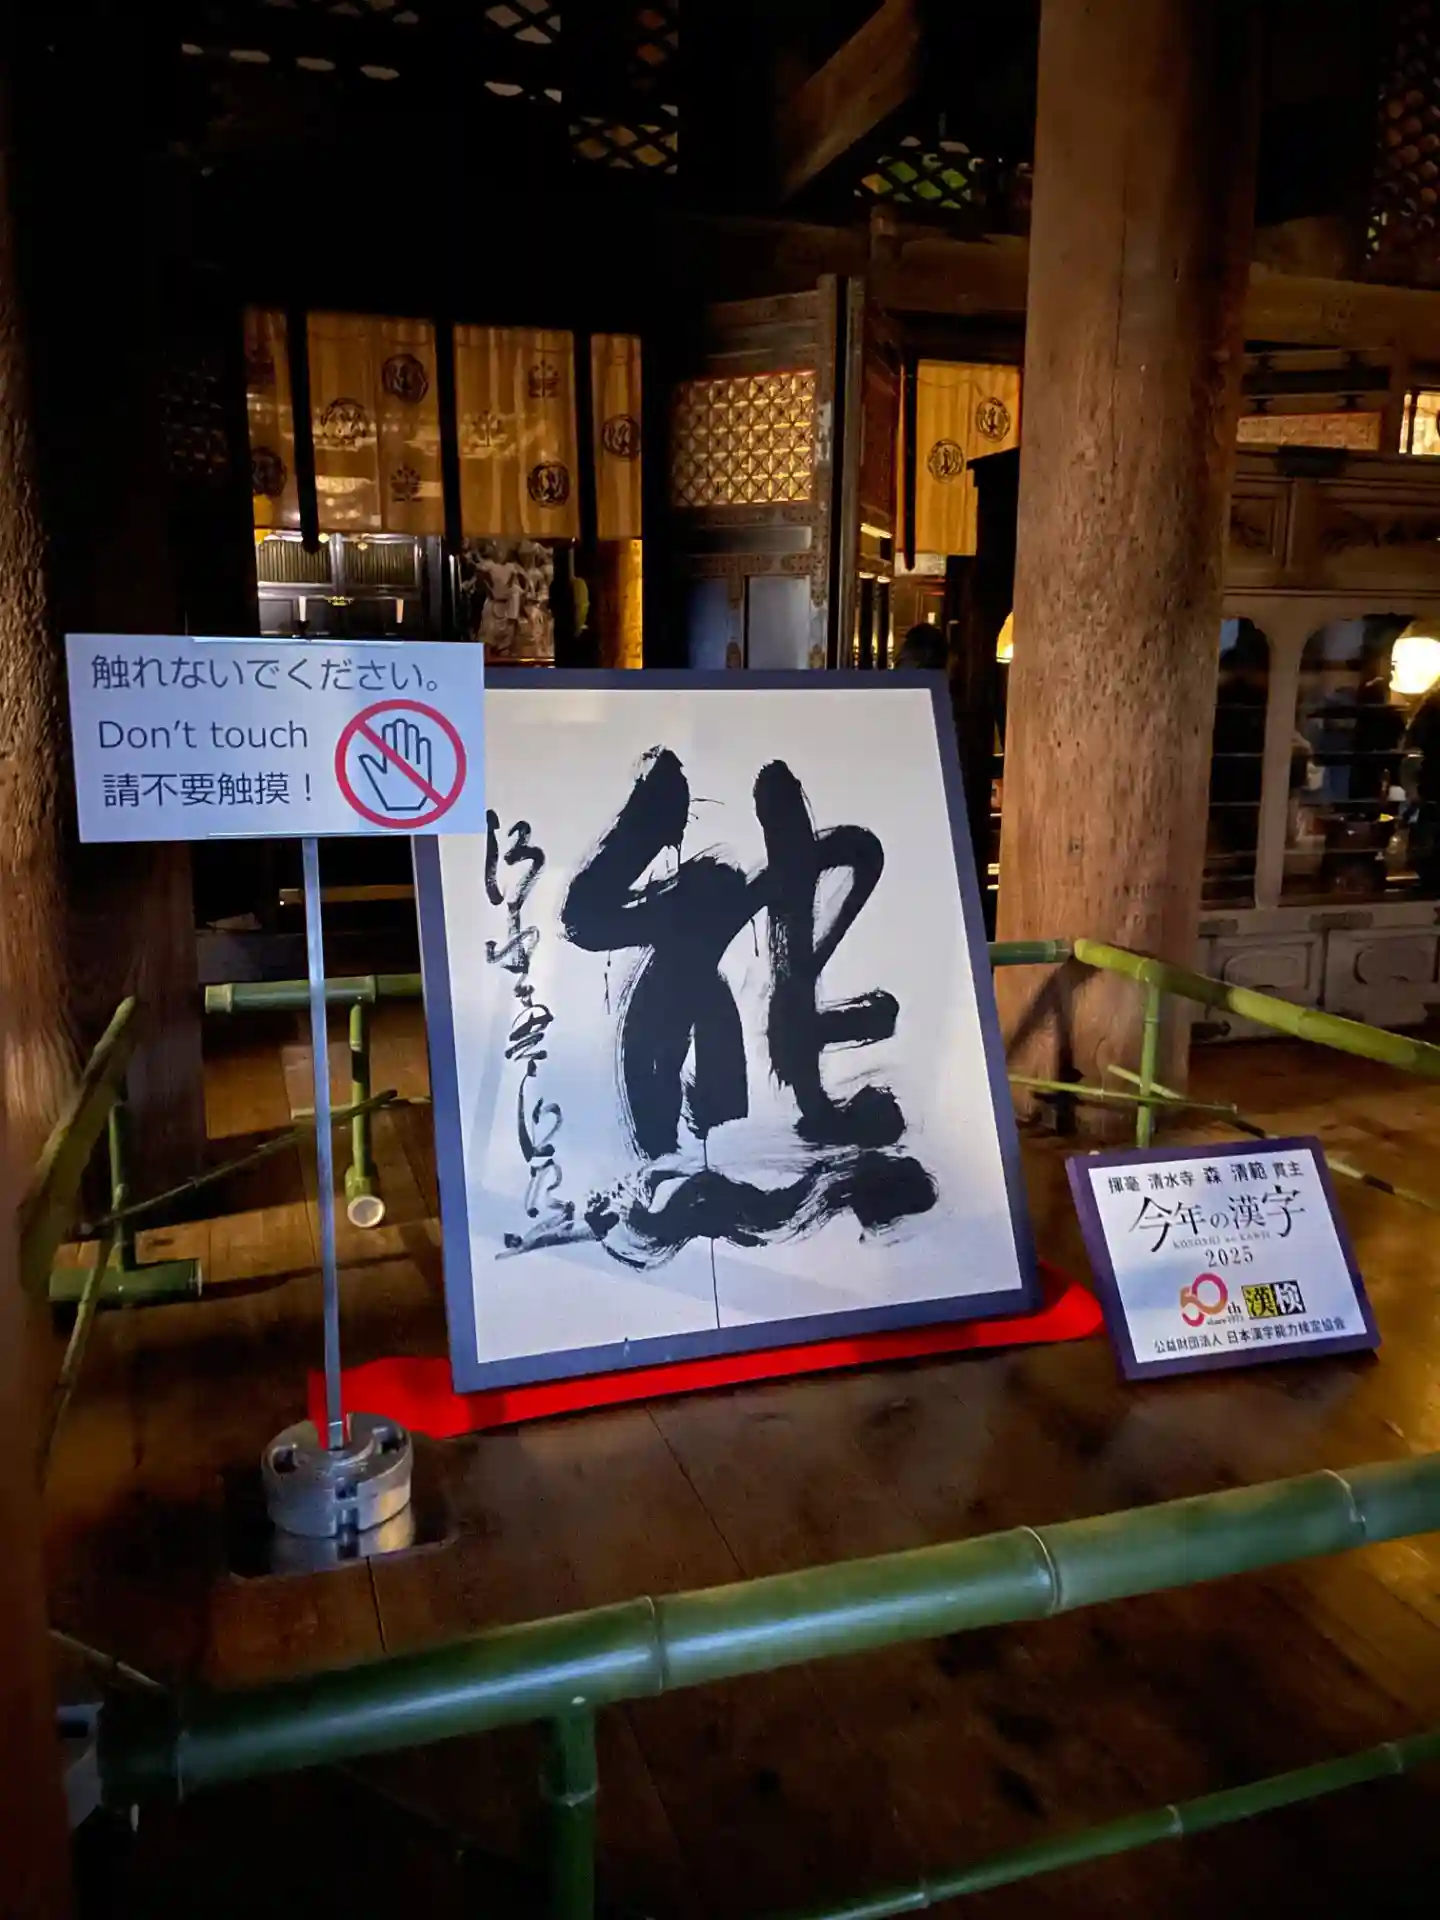 触れないでください。
Don't touch
請不要触摸！
熊
揮毫 清水寺 森 清範 貫主
今年の漢字
KOTOSHI no KANJI
2025
50th
since1975
漢検
公益財団法人 日本漢字能力検定協会